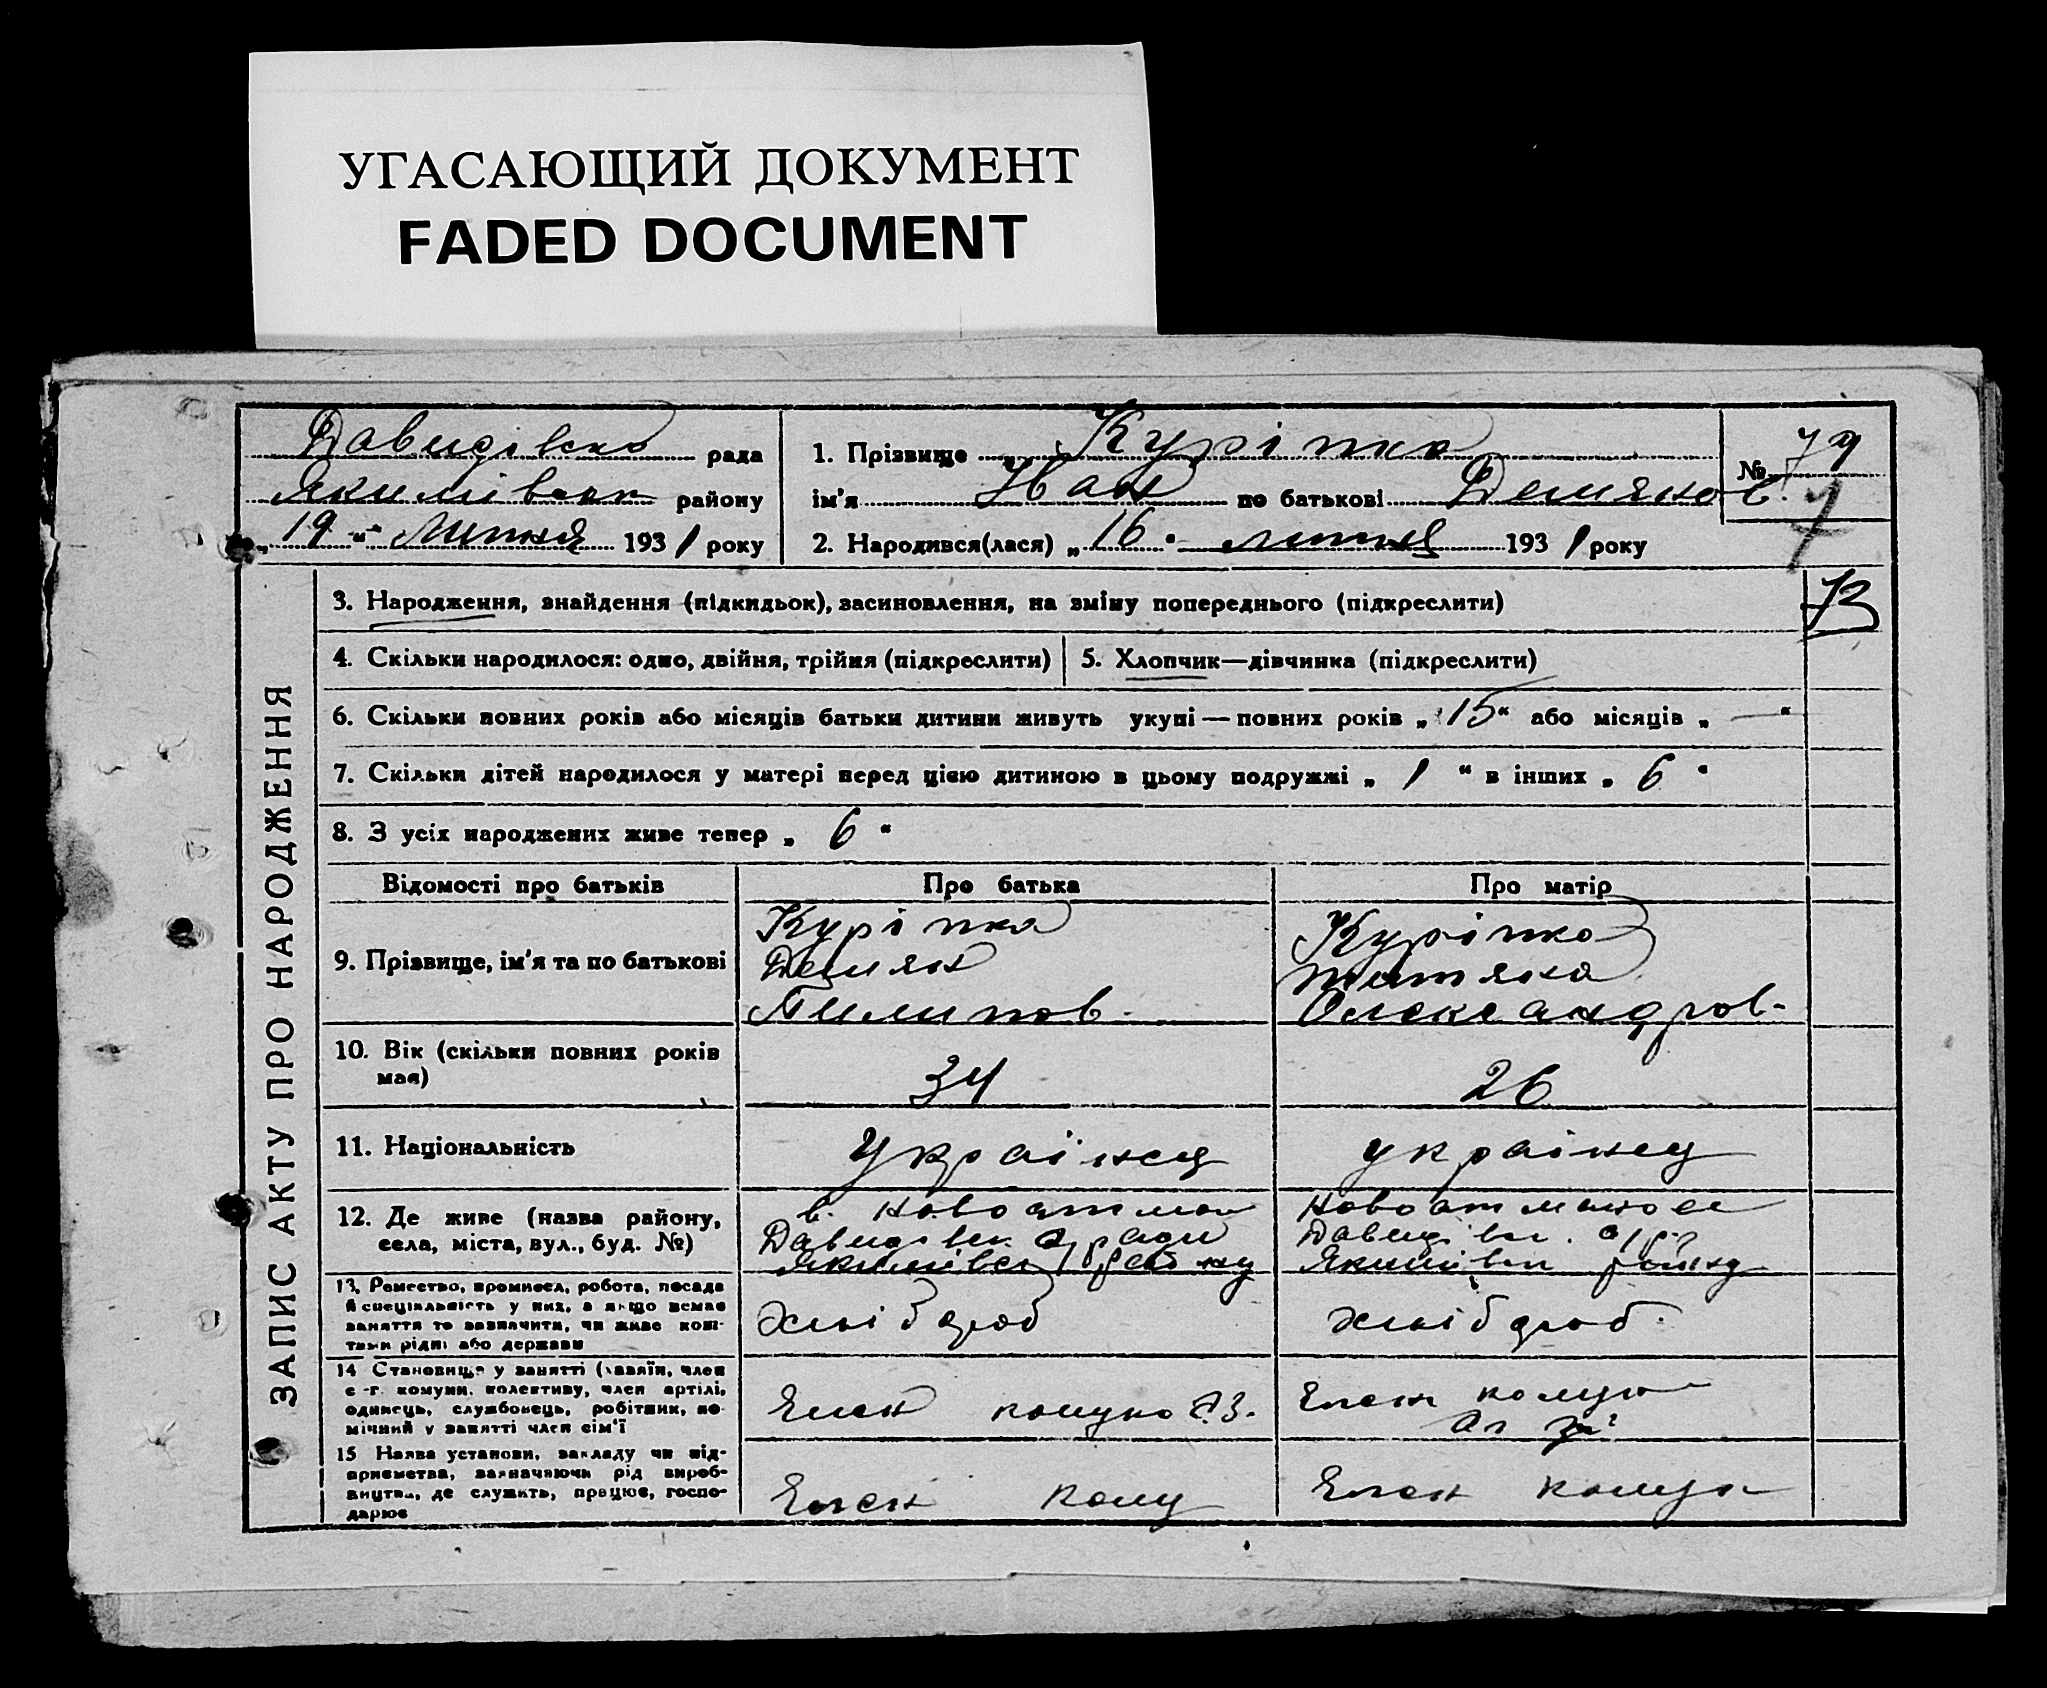 УГАСАЮЩИЙ ДОКУМЕНТ
FADED DOCUMENT
Давидівска рада
Якимівськ району
„ 19 “ липня 1931 року
1. Прізвище Куріпка
ім'я Іван по батькові Демянов.
2. Народився(лася) „ 16 “ липня 1931 року
№ 79
7
73
ЗАПИС АКТУ ПРО НАРОДЖЕННЯ
3. Народження, знайдення (підкидьок), засиновлення, на зміну попереднього (підкреслити)
4. Скільки народилося: одно, двійня, трійня (підкреслити)
5. Хлопчик—дівчинка (підкреслити)
6. Скільки повних років або місяців батьки дитини живуть укупі — повних років „ 15 “ або місяців „ — “
7. Скільки дітей народилося у матері перед цією дитиною в цьому подружжі „ 1 “ в інших „ 6 “
8. З усіх народжених живе тепер „ 6 “
Відомості про батьків
Про батька
Про матір
9. Прізвище, ім'я та по батькові
Куріпка
Демян
Пилипов.
Куріпка
Олександров-
10. Вік (скільки повних років
має)
34
26
11. Національність
Українец
українец
12. Де живе (назва району,
села, міста, вул., буд. №)
Давидівск ради
Якимівск району
Давидівск.
Якимівск району
13. Ремество, промисел, робота, посада
й спеціяльність у них, а якщо немає
заняття то зазначити, чи живе кош-
тами рідні або держави
Хлібороб
хлібороб.
14 Становище у занятті (хазяїн, член
с.-г. комуни, колективу, член артілі,
одинець, службовець, робітник, по-
мічний у занятті член сім'ї
Член
Член комун
15 Назва установи, закладу чи під-
приємства, зазначаючи рід вироб-
ництва, де служить, працює, госпо-
дарює
Член кому
Член комун